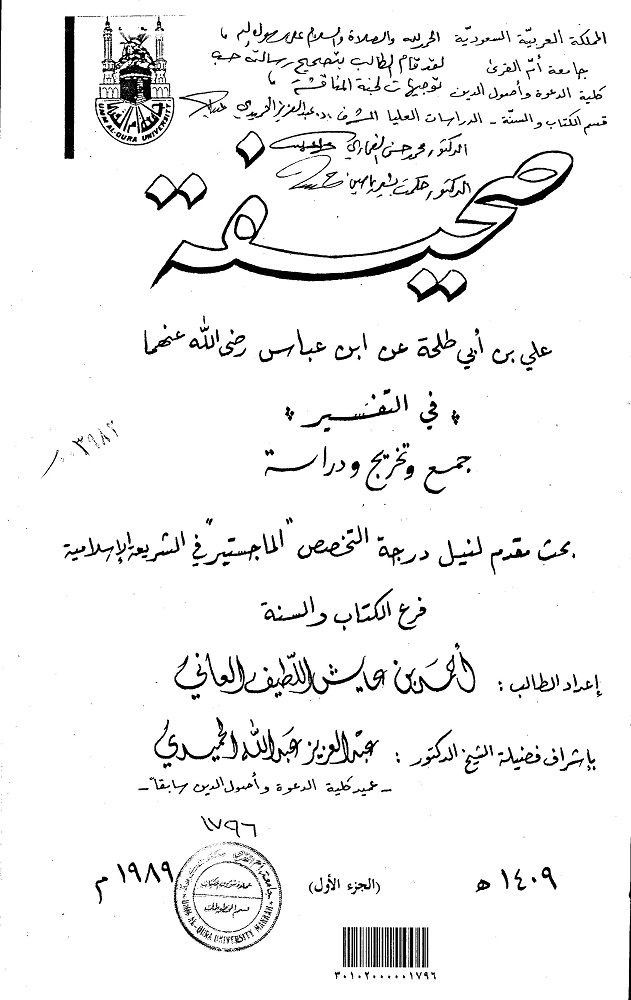 المملكة العربية السعودية
جامعة أم القرى
كلية الدعوة وأصول الدين
قسم الكتاب والسنة - الدراسات العليا
الحمد لله والصلاة والسلام على رسول الله
لقد قام الطالب بتصحيح رسالته حسب
توجيهات لجنة المناقشة
المشرف د. عبدالعزيز الحميدي
الدكتور محمد حسن الغماري
الدكتور حكمت بشير ياسين
UMM AL-QURA UNIVERSITY
صحيفة
علي بن أبي طلحة عن ابن عباس رضى الله عنهما
في التفسير
جمع وتخريج ودراسة
٣٩٨٢
بحث مقدم لنيل درجة التخصص "الماجستير" في الشريعة الإسلامية
فرع الكتاب والسنة
إعداد الطالب : أحمد بن عايش اللطيف العاني
بإشراف فضيلة الشيخ الدكتور : عبد العزيز عبد الله الحميدي
- عميد كلية الدعوة وأصول الدين سابقاً -
١٧٩٦
١٤٠٩ هـ
(الجزء الأول)
١٩٨٩ م
UMM AL-QURA UNIVERSITY MAKKAH
٣٠١٠٢٠٠٠٠٠١٧٩٦